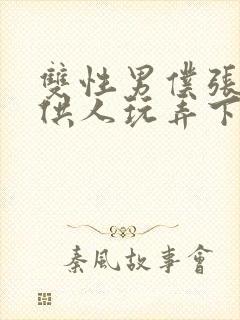 雙性男僕張
供人玩弄下
秦風故事會